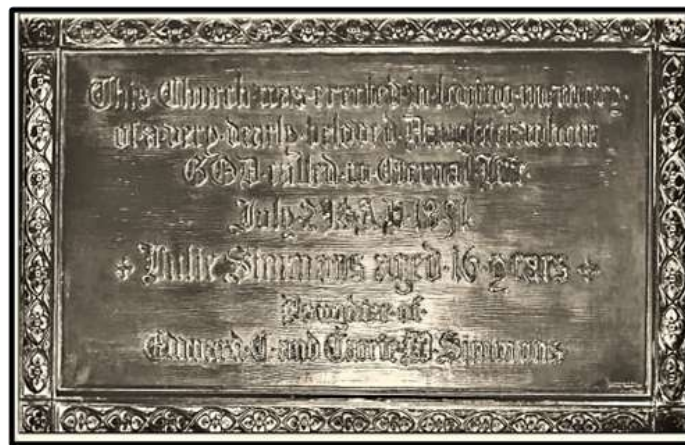 This Church was erected in loving memory
of a very dearly beloved Daughter whom
GOD called to Eternal Life
July A.D. 1891
+ Simmons aged 16 years +
Daughter of
Edward C. and Carrie W. Simmons